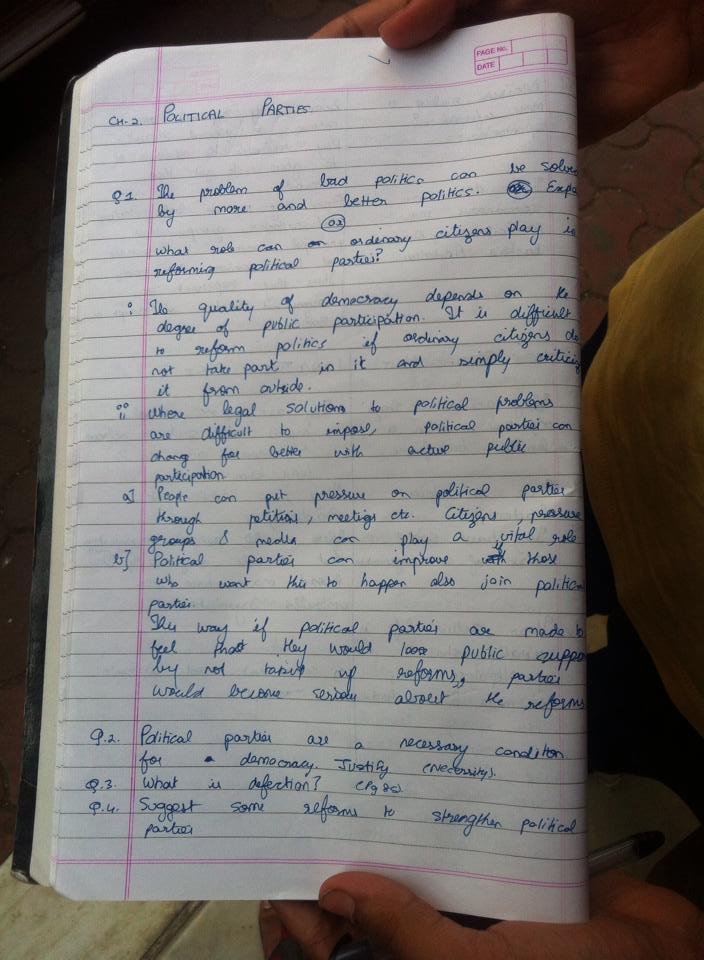 PAGE No.
DATE
CH-2. POLITICAL PARTIES.
Q1. The problem of bad politics can be solve
by more and better politics. Expla
(OR)
what role can ordinary citizens play in
reforming political parties?
i The quality of democracy depends on the
degree of public participation. It is difficult
to reform politics if ordinary citizens do
not take part in it and simply criticiz
it from outside.
ii where legal solutions to political problems
are difficult to impose, political parties can
change for better with active public
participation
a] People can put pressure on political parties
through petitions, meetings etc. Citizens, pressure
groups & media can play a vital role
b] Political parties can improve if those
who want this to happen also join politica
parties.
This way if political parties are made to
feel that they would lose public suppo
by not taking up reforms, parties
would become serious about the reforms
Q.2. Political parties are a necessary condition
for democracy. Justify (necessity).
Q.3. What is defection? (Pg 80)
Q.4. Suggest some reforms to strengthen political
parties